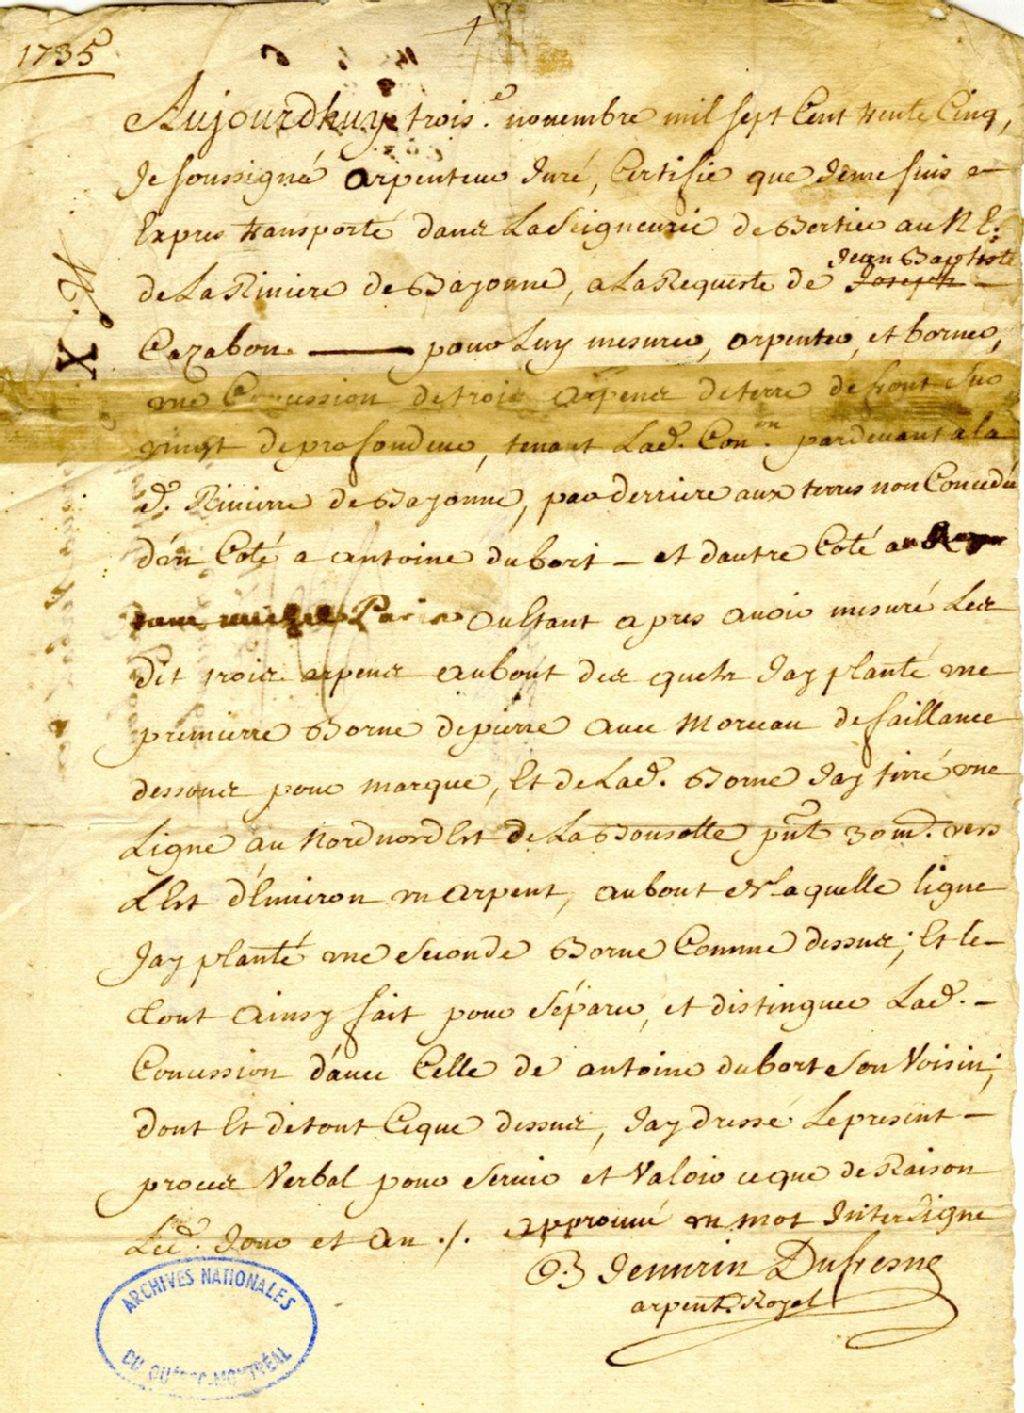 1735
Aujourdhuy trois.e novembre mil sept Cent trente Cinq,
Je soussigné arpenteur Juré, Certifie que Jeme suis
Expres transporté dans LaSeigneurie de Bertier au N E.
Jean Baptiste
de La Riviere de Bayonne, a La Requeste de Joseph
Carabon pour Luy mesurer, arpenter, et borner,
une Concession de trois arpens de terre de front sur
vingt de profondeur, tenant Lad.e Con.on pardevant a la
d.e Rivierre de Bayonne, par derriere aux terres non Concedés
d'un Coté a antoine dubort - et dautre Coté au
Paris aultant apres avoir mesuré Les
dit trois arpens au bout des quels Jay planté une
premierre Borne de pierre avec Morceau de faillance
dessous pour marque, Et de Lad.e Borne Jay tirré une
Ligne au Nord nord Est de La Bousolle pnt 30 md. vers
L'Est d'Environ un arpent, au bout de laquelle ligne
Jay planté une seconde Borne Comme dessus; Et le
tout Ainsy fait pour séparer, et distinguer Lad.e -
Concession d'avec Celle de antoine dubort son Voisin;
dont Et de tout Ceque dessus, Jay dressé Le present -
procez Verbal pour servir et Valoir ceque de Raison
Led. Jour et an ./. approuvé un mot Interligne
Jenvrin Dufresne
arpent. Royal
ARCHIVES NATIONALES
DU QUÉBEC-MONTRÉAL